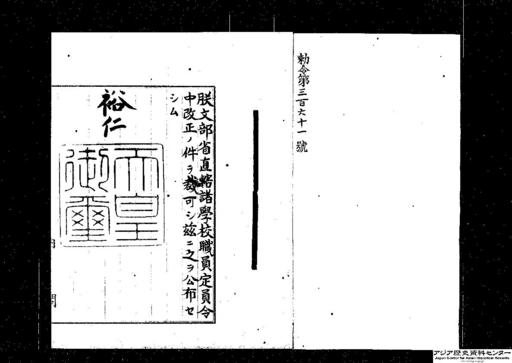 勅令第三百六十一號
朕文部省直轄諸學校職員定員令
中改正ノ件ヲ裁可シ茲ニ之ヲ公布セ
シム
裕仁
天皇
御璽
アジア歴史資料センター
Japan Center for Asian Historical Records